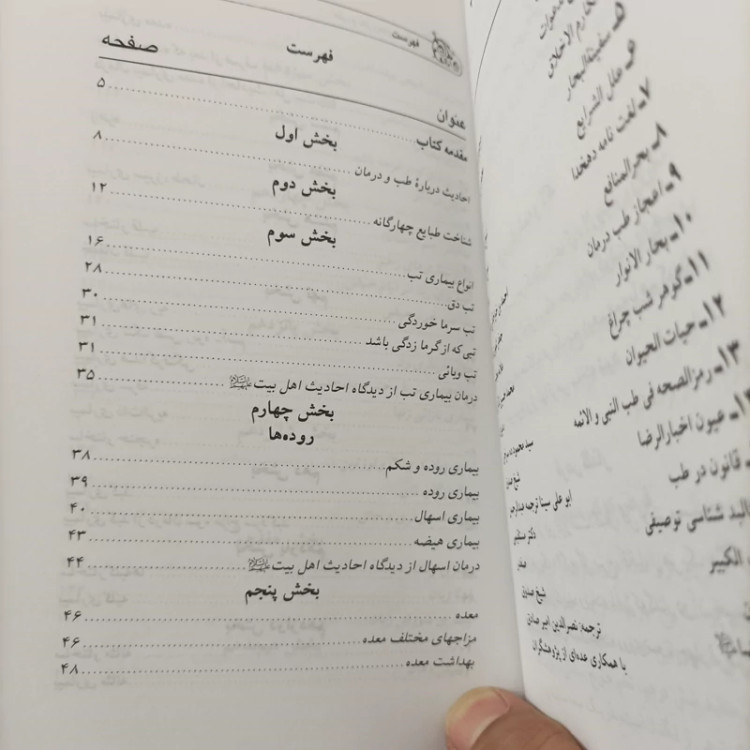 فهرست
فهرست
عنوان صفحه
مقدمه کتاب ۵
بخش اول
احادیث دربارهٔ طب و درمان ۸
بخش دوم
شناخت طبایع چهارگانه ۱۲
بخش سوم
انواع بیماری تب ۱۶
تب دق ۲۸
تب سرما خوردگی ۳۰
تبی که از گرما زدگی باشد ۳۱
تب وبائی ۳۱
درمان بیماری تب از دیدگاه احادیث اهل بیت ۳۵
بخش چهارم
روده‌ها
بیماری روده و شکم ۳۸
بیماری روده ۳۹
بیماری اسهال ۴۰
بیماری هیضه ۴۳
درمان اسهال از دیدگاه احادیث اهل بیت ۴۴
بخش پنجم
معده ۴۶
مزاجهای مختلف معده ۴۶
بهداشت معده ۴۸
مکارم الاخلاق
سفینةالبحار
۶ـ علل الشرایع
۷ـ لغت نامه دهخدا
۸ـ بحرالمنافع
۹ـ اعجاز طب درمان
۱۰ـ بحار الانوار
۱۱ـ گوهر شب چراغ
۱۲ـ حیات الحیوان
۱۳ـ رمزالصحه فی طب النبی و الائمه
عیون اخبارالرضا
قانون در طب
شناسی توصیفی
الکبیر
سید محمود
ابو علی سینا ترجمه
دکتر
صفر
شیخ صدوق
ترجمه: نصرالدین امیر صادقی
با همکاری عده‌ای از پژوهشگران